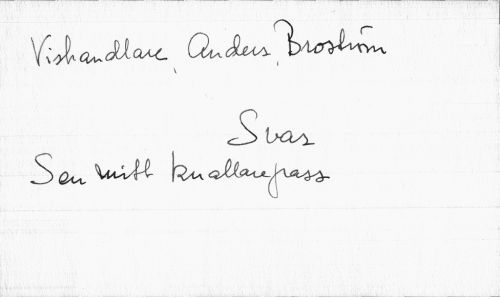 Vishandlare, Anders, Broström
Svar
Sen mitt knallarepass